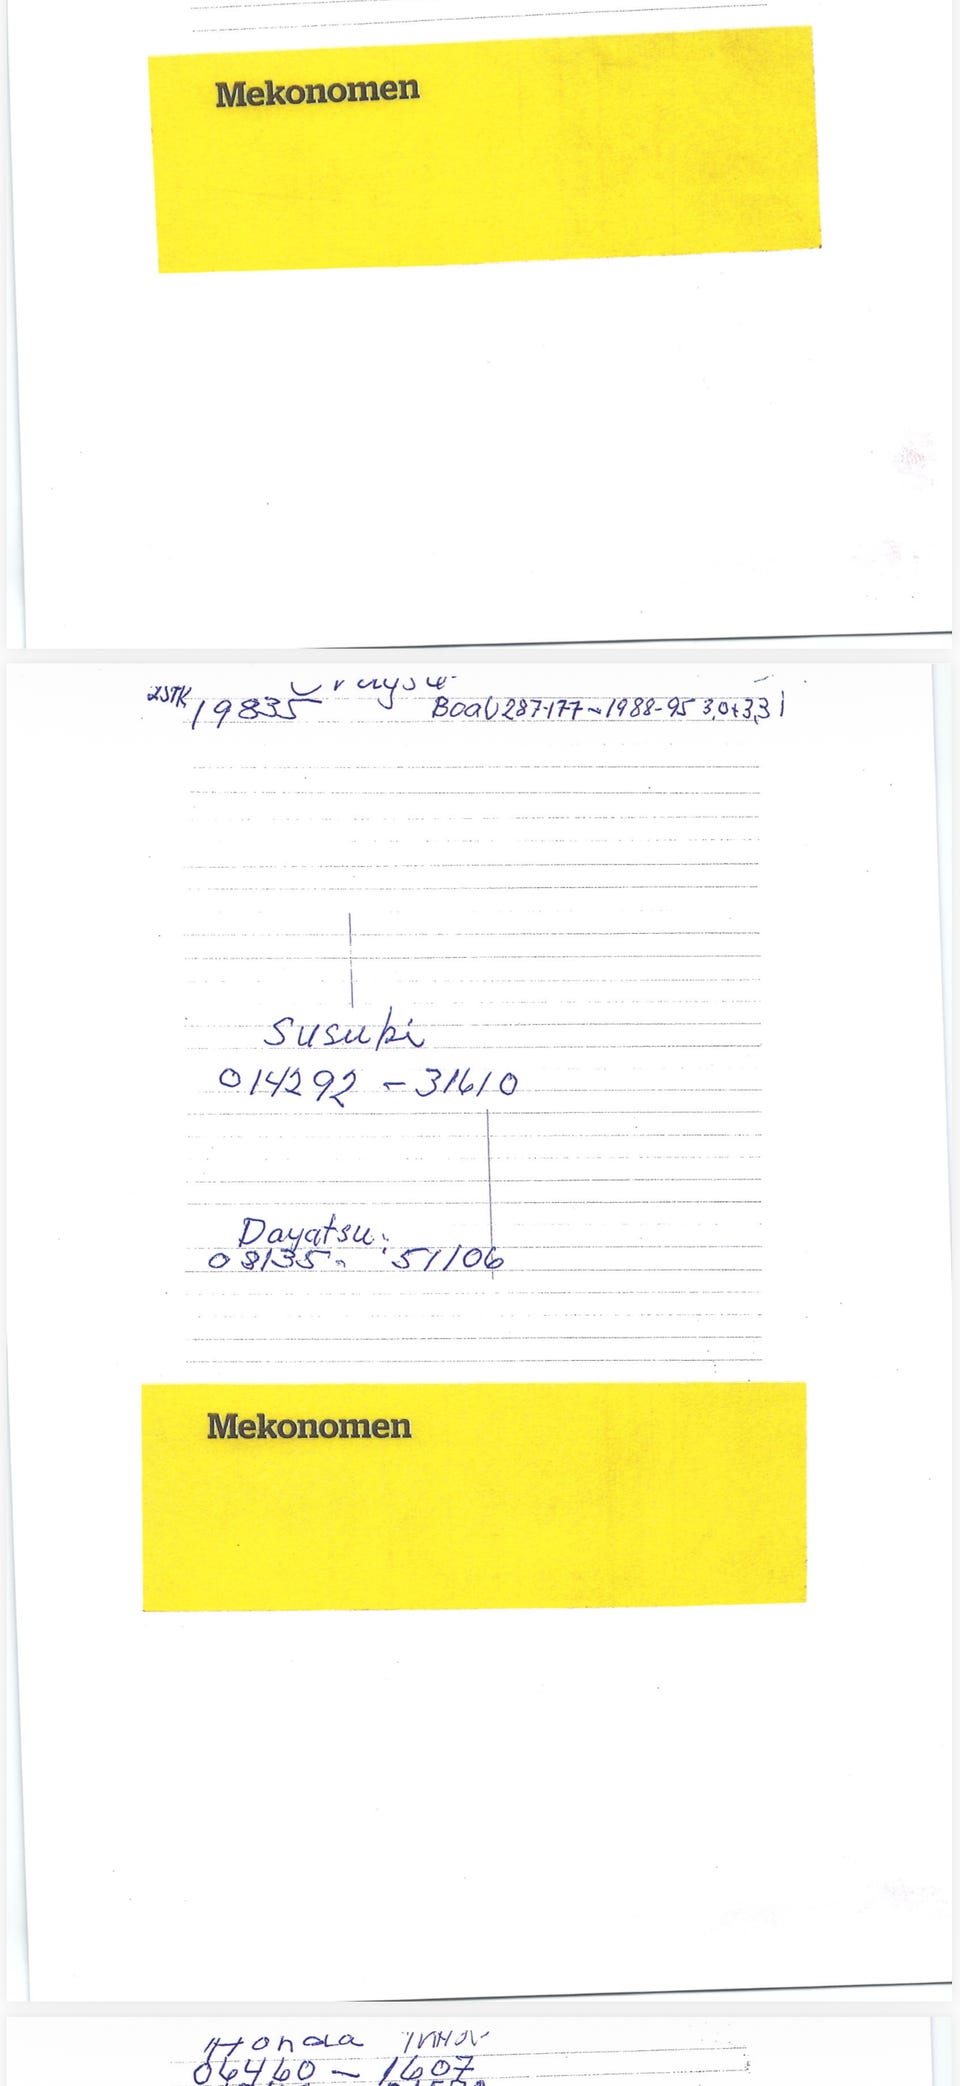 Mekonomen
2STK 19835 Boal 287-177-1988-95 3,0+3,3 l
Susuki
014292 - 31610
Dayatsu:
08135- 51106
Mekonomen
Honda
06460 - 1607